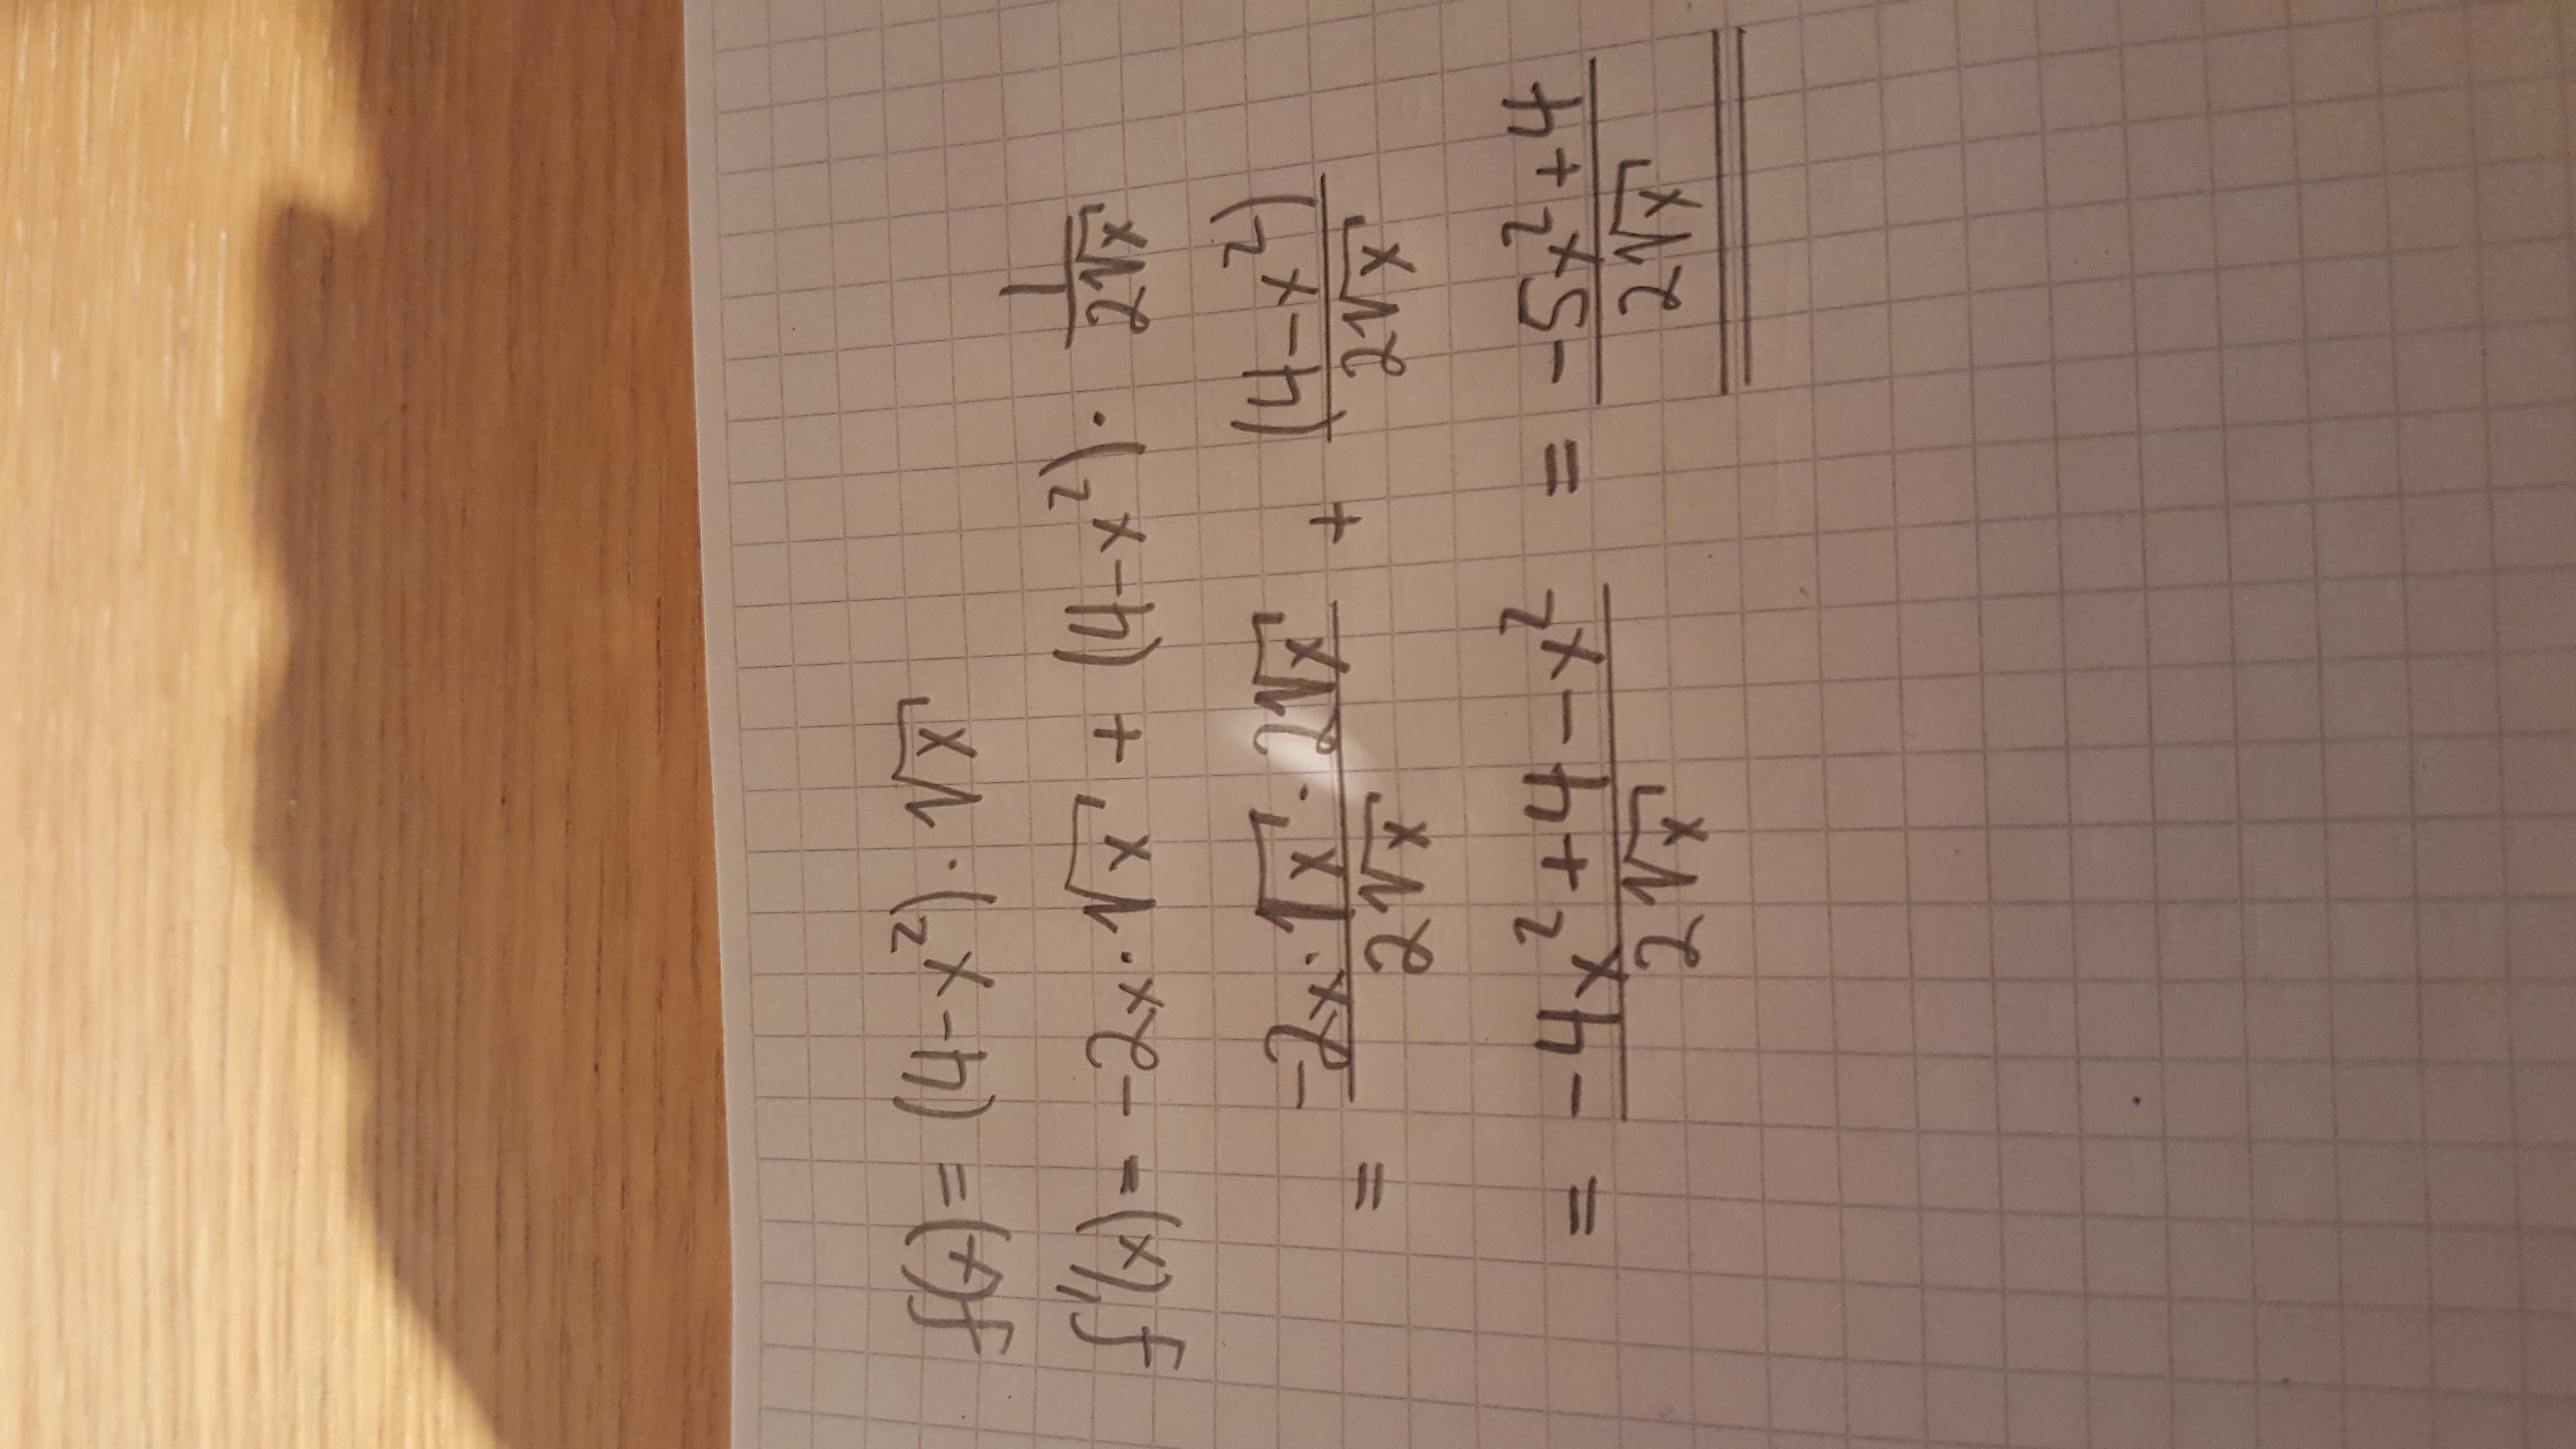 f(x) = (4-x²)·√x
f'(x) = -2x·√x + (4-x²)· 1/2√x
= -2x·√x·2√x/2√x + (4-x²)/2√x
= -4x²+4-x²/2√x = -5x²+4/2√x